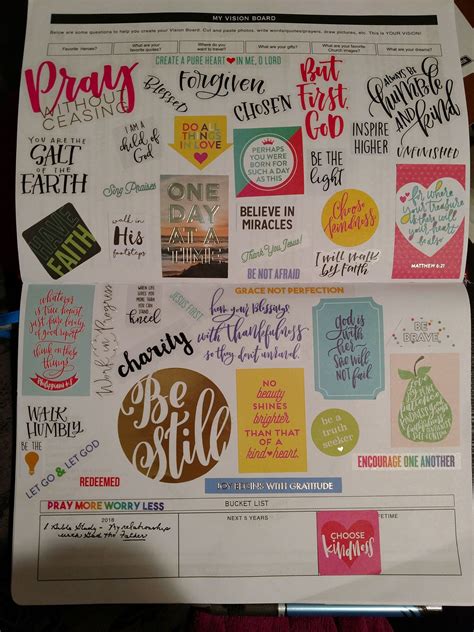 MY VISION BOARD
Below are some questions to help you create your Vision Board. Cut and paste photos, write words/quotes/prayers, draw pictures, etc. This is YOUR VISION!
Favorite Heroes?
What are your favorite quotes?
Where do you want to travel?
What are your gifts?
What are your favorite Church images?
What are your dreams?
Pray
WITHOUT
CEASING
CREATE A PURE HEART IN ME, O LORD
Blessed
Forgiven
CHOSEN
But
First,
GOD
Always Be
humble
AND
kind
YOU ARE THE
SALT
OF THE
EARTH
I AM A
child of
God
DO ALL
THINGS
IN LOVE
PERHAPS
YOU WERE
BORN FOR
SUCH A DAY
AS THIS
BE the
light
INSPIRE
HIGHER
UNFINISHED
FAITH
Sing Praises
walk in
His
footsteps
ONE
DAY
AT A
TIME
BELIEVE IN
MIRACLES
Thank You Jesus!
BE NOT AFRAID
Choose
kindness
I will walk
by FAITH
for where
your treasure
is there will
your heart
be also
MATTHEW 6:21
GRACE NOT PERFECTION
whatever
is true, honest,
just, pure, lovely,
of good report,
think on these
things
Philippians 4:8
Work in Progress
WHEN LIFE
GIVES YOU
MORE THAN
YOU CAN
STAND
kneel
JESUS FIRST
hem your blessings
with thankfulness
so they don't unravel.
God is
within
her
She will
not fail
BE
BRAVE
charity
WALK
HUMBLY
BE THE
LET GO & LET GOD
REDEEMED
Be
Still
NO
beauty
SHINES
brighter
THAN THAT OF
a kind heart
be a
truth
seeker
ENCOURAGE ONE ANOTHER
JOY BEGINS WITH GRATITUDE
PRAY MORE WORRY LESS
BUCKET LIST
2018
NEXT 5 YEARS
LIFETIME
1 Bible Study - My relationship
with God the Father
CHOOSE
kindness